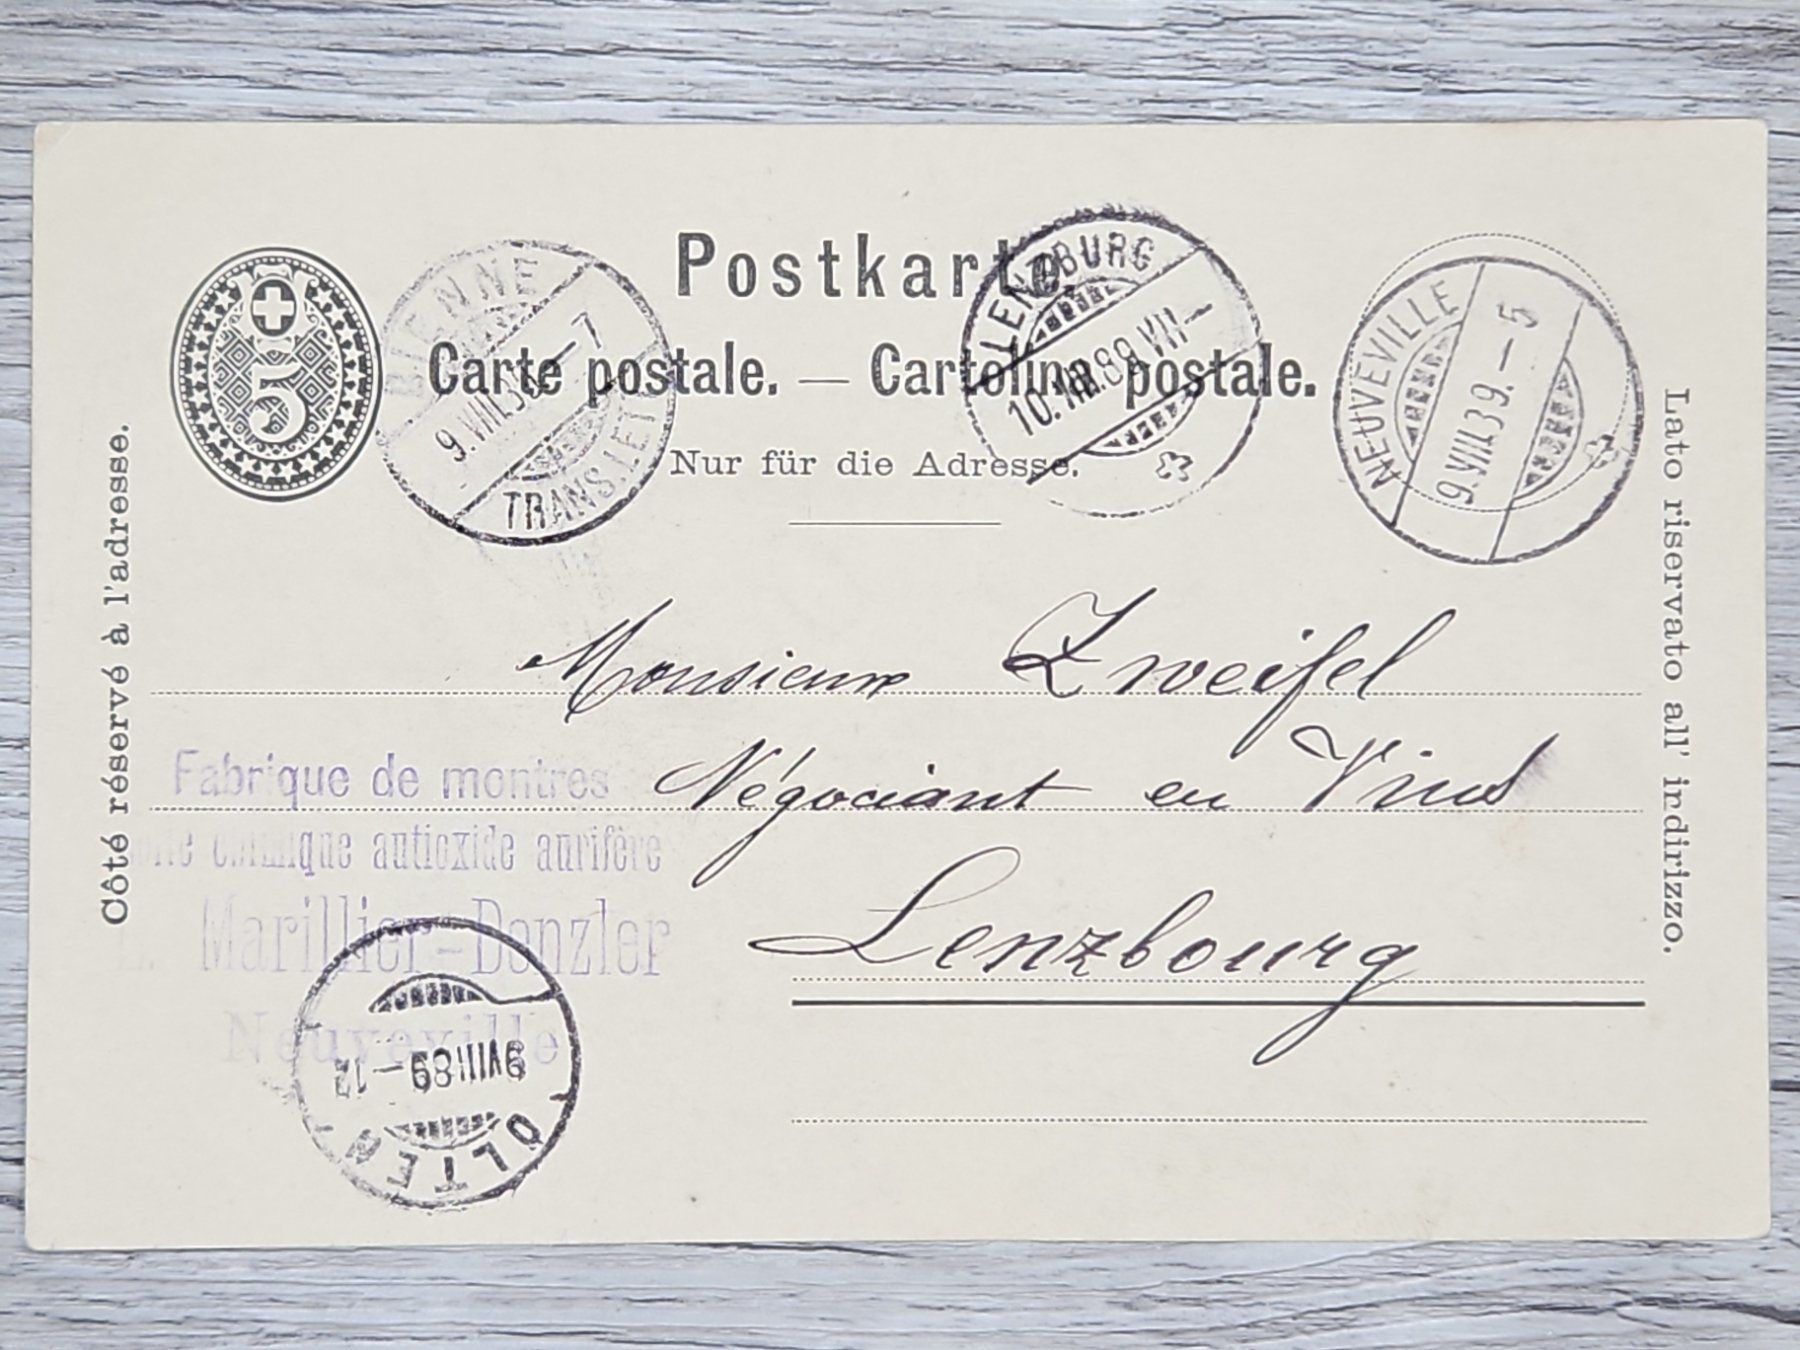 Postkarte.
Carte postale. — Cartolina postale.
Nur für die Adresse.
5
BIENNE
9.VIII. –7
TRANS.LET
LENZBURG
10.VIII.89.VII–
NEUVEVILLE
9.VIII.39.–5
Côté réservé à l'adresse.
Lato riservato all' indirizzo.
Monsieur Zweifel
Négociant en Vins
Lenzbourg
Fabrique de montres
chimique antioxide aurifère
Marillier-Denzler
Neuveville
OLTEN
9.VIII.89–12